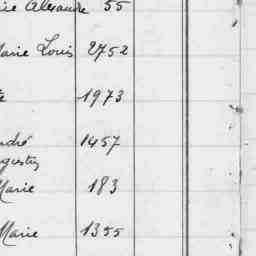 Alexandre 55
Marie Louis 2752
1973
André 1457
Augustin
Marie 183
Marie 1355